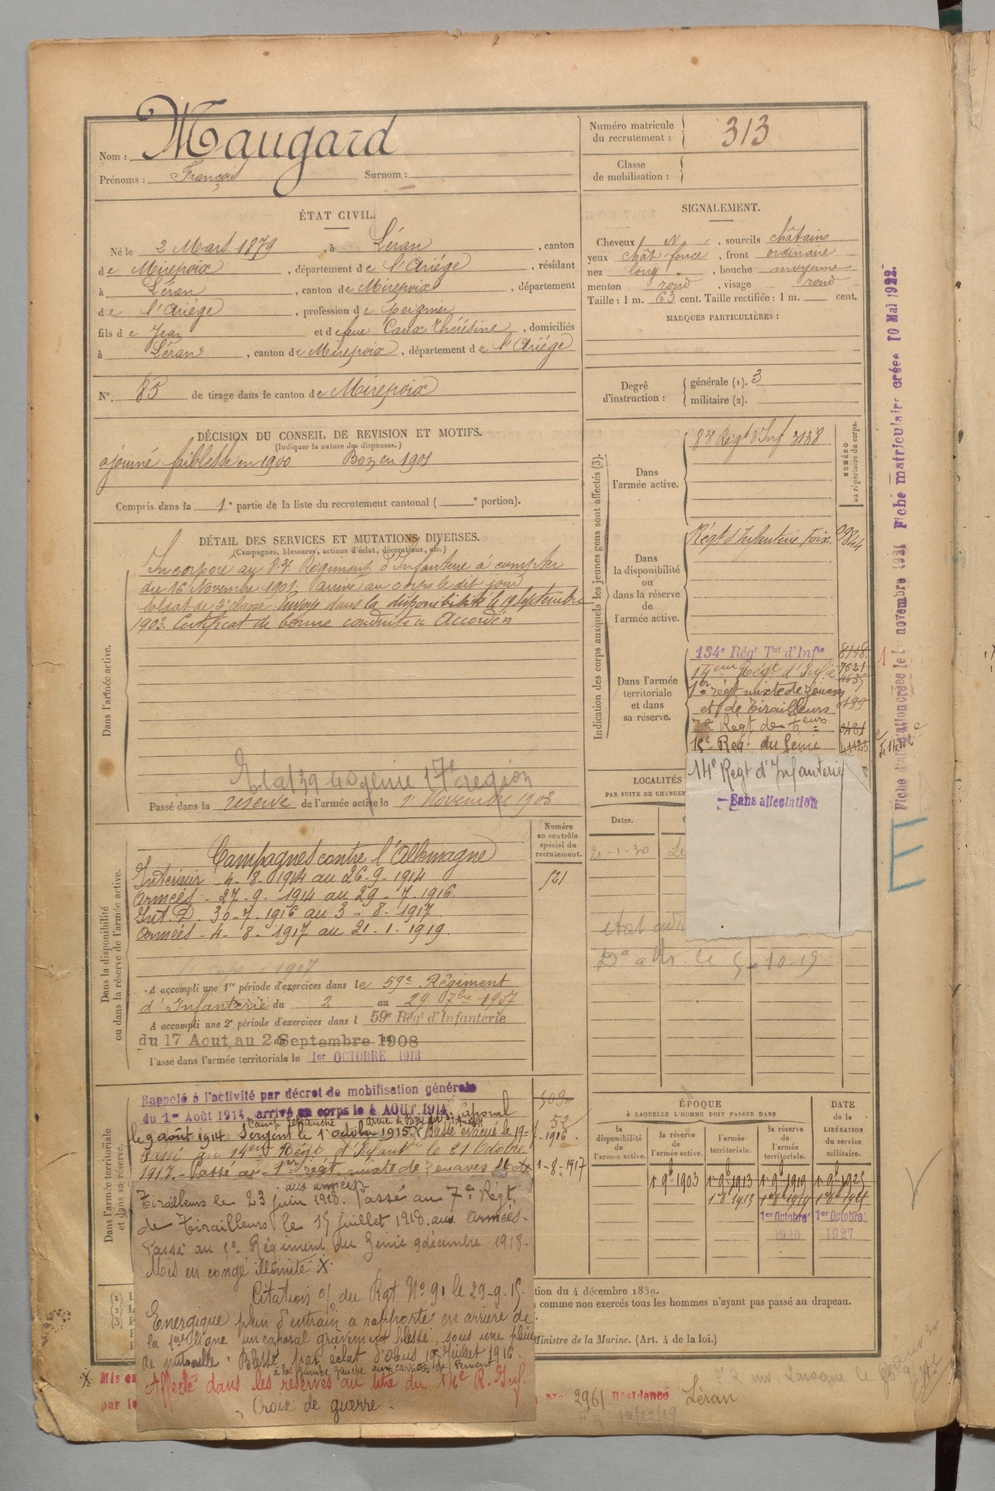 Nom : Maugard
Prénoms : François Surnom :
Numéro matricule du recrutement : 313
Classe de mobilisation :
ÉTAT CIVIL.
Né le 2 Mars 1879, à Léran, canton
de Mirepoix, département de l'Ariége, résidant
à Léran, canton de Mirepoix, département
de l'Ariége, profession de Peignier
fils de Jean et de feue Caux Thérésine, domiciliés
à Léran, canton de Mirepoix, département de l'Ariége
N° 85 de tirage dans le canton de Mirepoix
DÉCISION DU CONSEIL DE REVISION ET MOTIFS.
(Indiquer la nature des dispenses.)
ajourné faiblesse en 1900 Bon en 1901
Compris dans la 1e partie de la liste du recrutement cantonal ( e portion).
SIGNALEMENT.
Cheveux N, sourcils châtains
yeux chât. foncé, front ordinaire
nez long, bouche moyenne
menton rond, visage rond
Taille : 1 m. 63 cent. Taille rectifiée : 1 m. cent.
MARQUES PARTICULIÈRES :
Degré d'instruction : générale (1). 3
militaire (2).
DÉTAIL DES SERVICES ET MUTATIONS DIVERSES.
(Campagnes, blessures, actions d'éclat, décorations, etc.)
Dans l'armée active.
Incorporé au 87e Régiment d'Infanterie à compter
du 16 Novembre 1901. Arrivé au corps le dit jour
soldat de 2e classe. Envoyé dans la disponibilité le 19 Septembre
1903. Certificat de bonne conduite Accordé
génie 17e region
Passé dans la réserve de l'armée active le 1 Novembre 190
Indication des corps auxquels les jeunes gens sont affectés (3).
NUMÉRO au répertoire du corps.
Dans l'armée active.
87 Régt d'Inf 3138
Dans la disponibilité ou dans la réserve de l'armée active.
Régt d'Infanterie Foix
Dans l'armée territoriale et dans sa réserve.
134e Rég' T'al d'Inf'ie 8148
14eme Régt d'Inf'ie 7621
1er régt mixte de Zouaves
et de Tirailleurs
7e Régt de Teurs
1er Reg' du Génie
14e Regt d'Infanterie
Sans affectation
LOCALITÉS
PAR SUITE DE CHANGEM
Dates.
21-1-30 Lé
Dans la disponibilité ou dans la réserve de l'armée active.
Numéro au contrôle spécial du recrutement.
Campagnes contre l'Allemagne
Intérieur - 4-8-1914 au 26-9-1914
Armées - 27-9-1914 au 29-7-1916
Int. - 30-7-1916 au 3-8-1917
Armées - 4-8-1917 au 21-1-1919
A accompli une 1re période d'exercices dans le 59e Régiment
d'Infanterie du 2 au 29 1907
A accompli une 2e période d'exercices dans l 59e Rég' d'Infanterie
du 17 Aout au 2 Septembre 1908
Passé dans l'armée territoriale le 1er OCTOBRE 1913
Dans l'armée territoriale et dans sa réserve.
Rappelé à l'activité par décret de mobilisation générale
du 1er Août 1914, arrivé au corps le 4 AOUT 1914. Caporal
le 9 août 1914 Sergent le 1er octobre 1915
Passé au 14eme Régt d'Infant'ie le 21 Octobre
1917. Passé au 1er régt mixte de Zouaves et de
aux armées
Tirailleurs le 23 juin 1918. Passé au 7e Régt
de Tirailleurs le 15 juillet 1918 aux Armées.
Passé au 1er Régiment du Génie 9 décembre 1918.
Mis en congé illimité X.
Citation o/ du Rgt N° 91 le 29-9-15.
Energique plein d'entrain a rapporté en arrière de
la 1ère ligne un caporal grièvement blessé, sous une pluie
de mitraille. Blessé par éclat d'obus Juillet 1916
à la jambe gauche
Affecté dans les réserves au titre du 14e R. Inf.
Croix de guerre.
ÉPOQUE
À LAQUELLE L'HOMME DOIT PASSER DANS
la disponibilité de l'armée active.
la réserve de l'armée active.
l'armée territoriale.
la réserve de l'armée territoriale.
DATE de la LIBÉRATION du service militaire.
1er Octobre 1920
1er Octobre 1927
tion du 4 décembre 1889.
comme non exercés tous les hommes n'ayant pas passé au drapeau.
Ministre de la Marine. (Art. 4 de la loi.)
Mis en
par le
2961 Résidence Léran
Fiche matriculaire créée 10 Mai 1922.